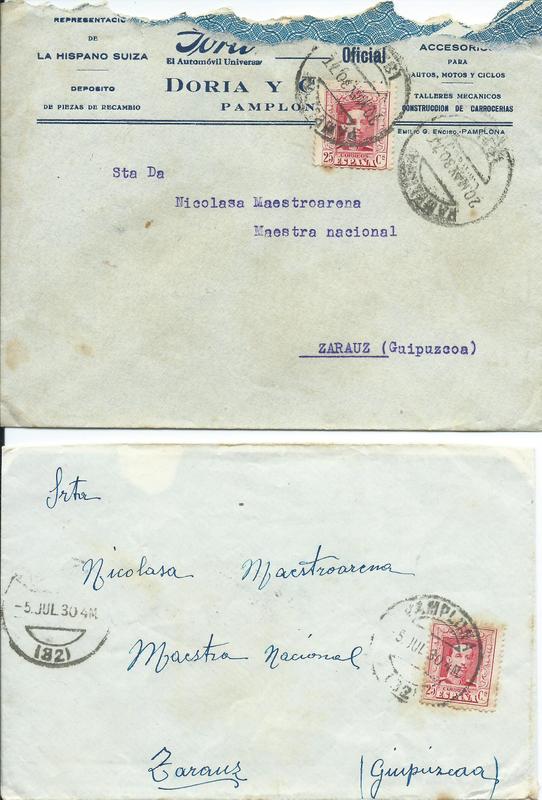 REPRESENTACIO
DE
LA HISPANO SUIZA
DEPOSITO
DE PIEZAS DE RECAMBIO
Ford
Oficial
El Automóvil Universal
DORIA Y C
PAMPLON
ACCESORIOS
PARA
AUTOS, MOTOS Y CICLOS
TALLERES MECANICOS
CONSTRUCCION DE CARROCERIAS
Emilio G. Enciso.-PAMPLONA
CORREOS
25 Cs
ESPAÑA
20 MAY 30
Sta Da
Nicolasa Maestroarena
Maestra nacional
ZARAUZ (Guipuzcoa)
Srta
Nicolasa Maestroarena
-5.JUL.30 4M
(82)
PAMPLONA
5 JUL 30
25 Cs
ESPAÑA
Maestra Nacional
Zarauz (Guipúzcoa)